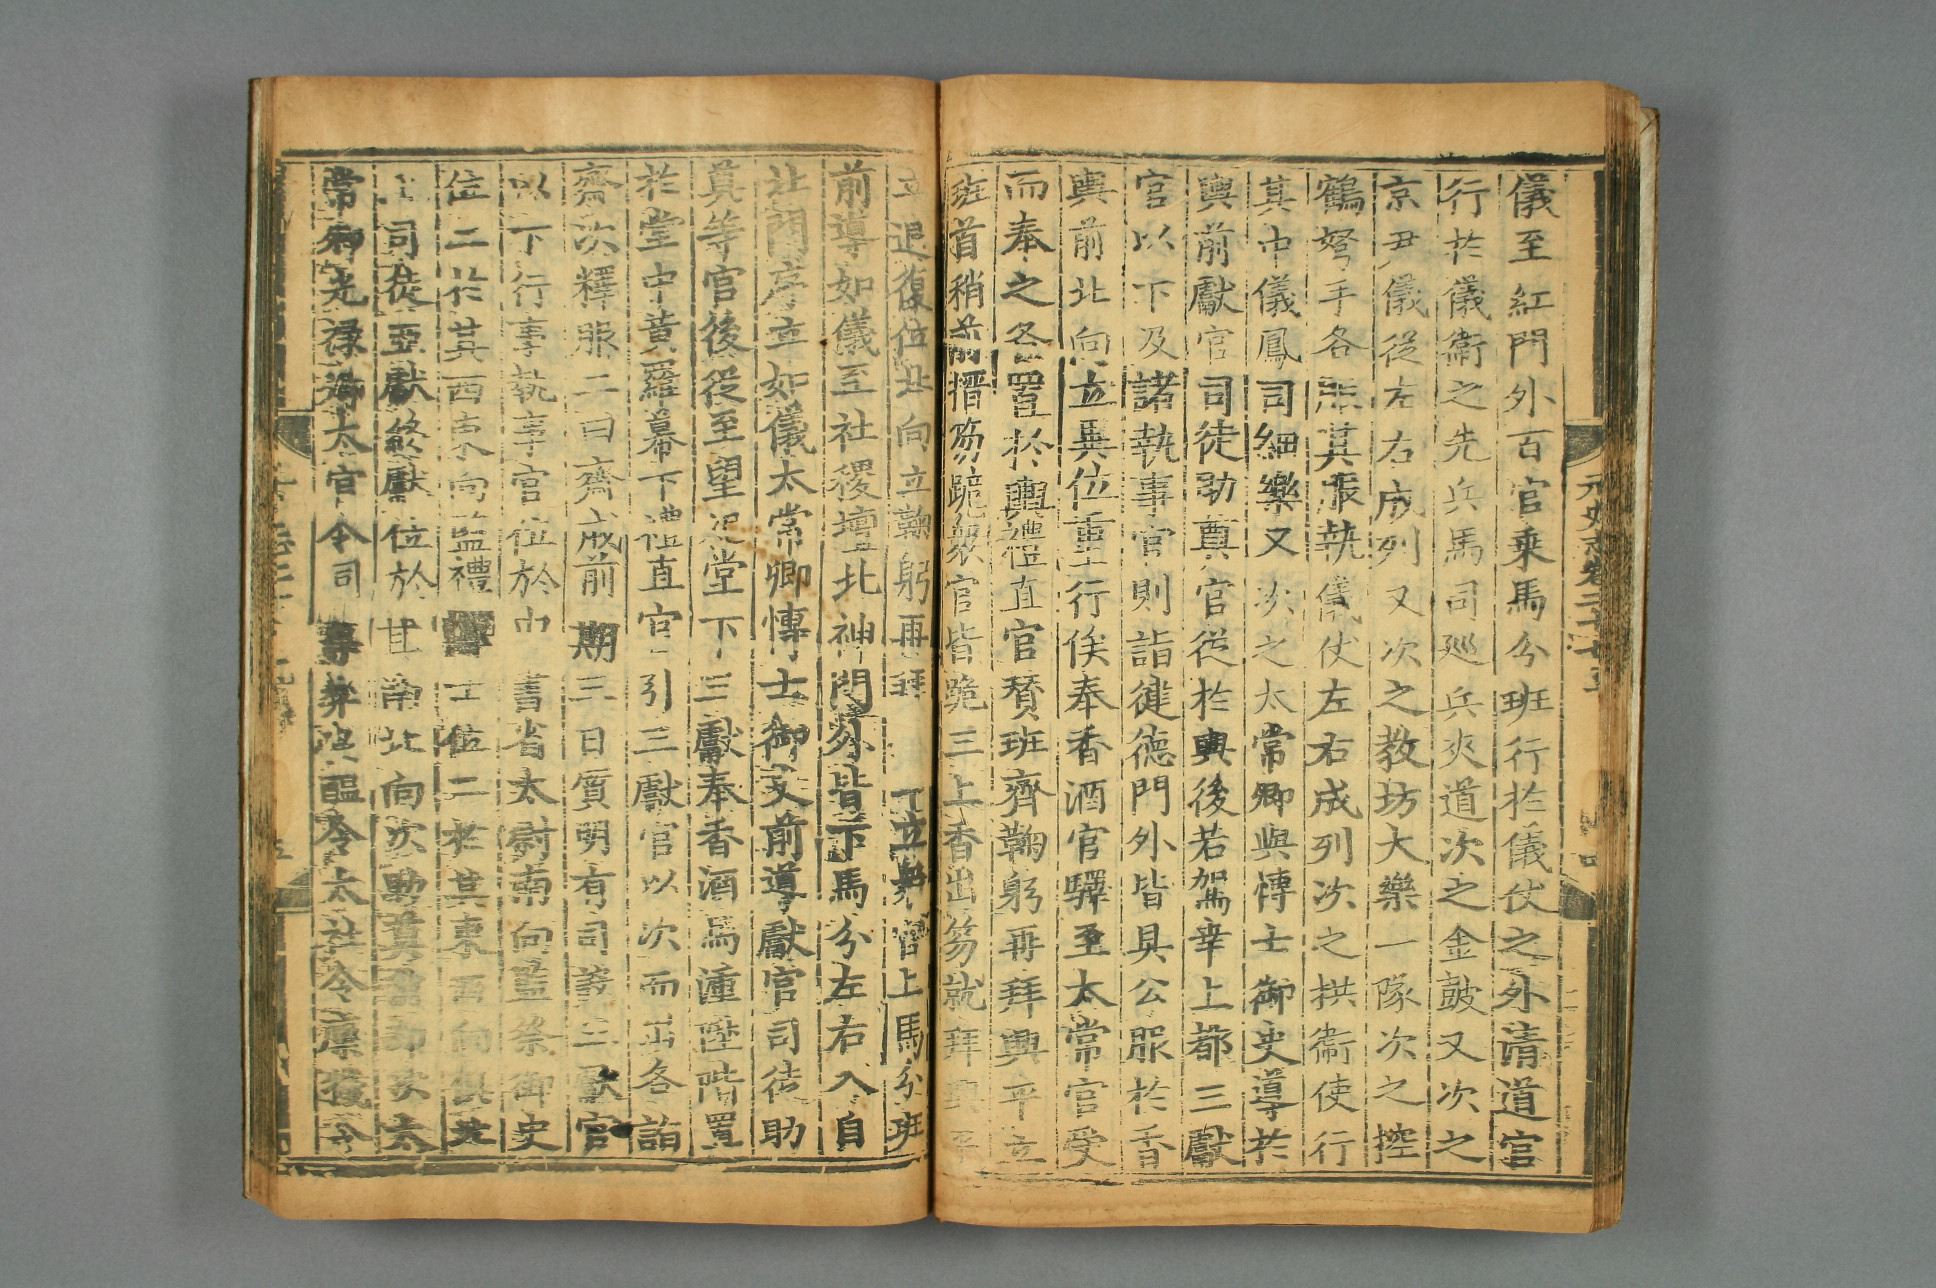 儀至紅門外百官乘馬分班行於儀仗之外清道官
行於儀衛之先兵馬司巡兵夾道次之金鼓又次之
京尹儀從左右成列又次之教坊大樂一隊次之控
鶴弩手各服其服執儀仗左右成列次之拱衛使行
其中儀鳳司細樂又次之太常卿與博士御史導於
輿前獻官司徒助奠官從於輿後若駕幸上都三獻
官以下及諸執事官則詣健德門外皆具公服於香
輿前北向立異位重行俟奉香酒官驛至太常官受
而奉之各置於輿禮直官贊班齊鞠躬再拜興平立
班首稍前搢笏跪衆官皆跪三上香出笏就拜興平
立退復位北向立鞠躬再拜 立衆官上馬分班
前導如儀至社稷壇北神門外皆下馬分左右入自
北門序立如儀太常卿博士御史前導獻官司徒助
奠等官後從至望祀堂下三獻奉香酒馬湩陞階置
於堂中黃羅幕下禮直官引三獻官以次而出各詣
齋次釋服二曰齋戒前期三日質明有司設三獻官
以下行事執事官位於中書省太尉南向監祭御史
位二於其西東向監禮 士位二於其東西向俱北
上司徒亞獻終獻位於其南北向次助奠 太
常卿光祿卿太官令司尊彝 令太社令廩犧令
元史志卷二十七上